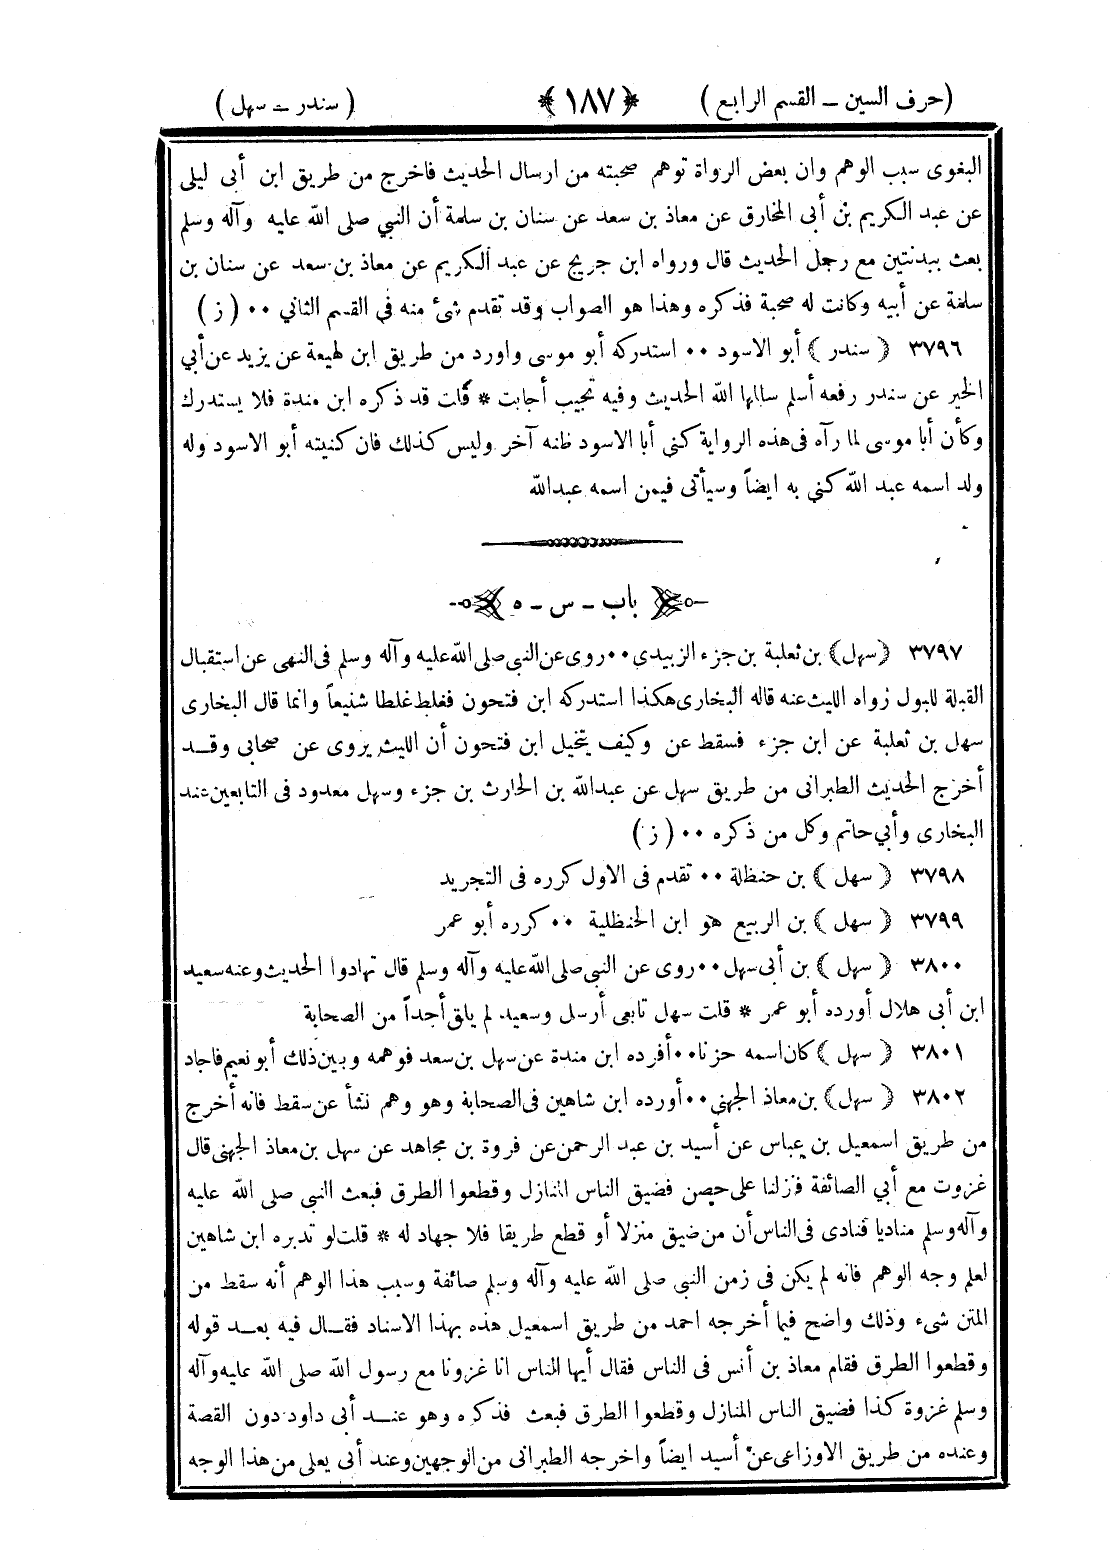 (حرف السين – القسم الرابع) ﴿١٨٧﴾ (سندر – سهل)
البغوى سبب الوهم وان بعض الرواة توهم صحبته من ارسال الحديث فاخرج من طريق ابن أبى ليلى
عن عبد الكريم بن أبى المخارق عن معاذ بن سعد عن سنان بن سلمة أن النبي صلى الله عليه وآله وسلم
بعث ببدنتين مع رجل الحديث قال ورواه ابن جريج عن عبد الكريم عن معاذ بن سعد عن سنان بن
سلمة عن أبيه وكانت له صحبة فذكره وهذا هو الصواب وقد تقدم شئ منه في القسم الثاني ٠٠ (ز)
٣٧٩٦ ﴿سندر﴾ أبو الاسود ٠٠ استدركه أبو موسى واورد من طريق ابن لهيعة عن يزيد عن أبي
الخير عن سندر رفعه أسلم سالمها الله الحديث وفيه تجيب أجابت * قلت قد ذكره ابن مندة فلا يستدرك
وكأن أبا موسى لما رآه فى هذه الرواية كنى أبا الاسود ظنه آخر وليس كذلك فان كنيته أبو الاسود وله
ولد اسمه عبد الله كني به ايضاً وسيأتى فيمن اسمه عبدالله
باب – س – ه
٣٧٩٧ ﴿سهل﴾ بن ثعلبة بن جزء الزبيدي ٠٠ روى عن النبي صلى الله عليه وآله وسلم فى النهى عن استقبال
القبلة للبول رواه الليث عنه قاله البخارى هكذا استدركه ابن فتحون فغلط غلطا شنيعاً وانما قال البخارى
سهل بن ثعلبة عن ابن جزء فسقط عن وكيف يتخيل ابن فتحون أن الليث يروى عن صحابى وقد
أخرج الحديث الطبرانى من طريق سهل عن عبدالله بن الحارث بن جزء وسهل معدود فى التابعين عند
البخارى وأبي حاتم وكل من ذكره ٠٠ (ز)
٣٧٩٨ ﴿سهل﴾ بن حنظلة ٠٠ تقدم فى الاول كرره فى التجريد
٣٧٩٩ ﴿سهل﴾ بن الربيع هو ابن الحنظلية ٠٠ كرره أبو عمر
٣٨٠٠ ﴿سهل﴾ بن أبى سهل ٠٠ روى عن النبى صلى الله عليه وآله وسلم قال تهادوا الحديث وعنه سعيد
ابن أبي هلال أورده أبو عمر * قلت سهل تابعى أرسل وسعيد لم يلق أحداً من الصحابة
٣٨٠١ ﴿سهل﴾ كان اسمه حزنا ٠٠ أفرده ابن مندة عن سهل بن سعد فوهمه وبين ذلك أبو نعيم فاجاد
٣٨٠٢ ﴿سهل﴾ بن معاذ الجهني ٠٠ أورده ابن شاهين فى الصحابة وهو وهم نشأ عن سقط فانه أخرج
من طريق اسمعيل بن عباس عن أسيد بن عبد الرحمن عن فروة بن مجاهد عن سهل بن معاذ الجهنى قال
غزوت مع أبي الصائفة فنزلنا على حصن فضيق الناس المنازل وقطعوا الطرق فبعث النبى صلى الله عليه
وآله وسلم مناديا فنادى فى الناس أن من ضيق منزلا أو قطع طريقا فلا جهاد له * قلت لو تدبره ابن شاهين
لعلم وجه الوهم فانه لم يكن فى زمن النبي صلى الله عليه وآله وسلم صائفة وسبب هذا الوهم أنه سقط من
المتن شيء وذلك واضح فيما أخرجه احمد من طريق اسمعيل هذه بهذا الاسناد فقال فيه بعد قوله
وقطعوا الطرق فقام معاذ بن أنس فى الناس فقال أيها الناس انا غزونا مع رسول الله صلى الله عليه وآله
وسلم غزوة كذا فضيق الناس المنازل وقطعوا الطرق فبعث فذكره وهو عند أبى داود دون القصة
وعنده من طريق الاوزاعى عن أسيد ايضاً واخرجه الطبرانى من الوجهين وعند أبى يعلى من هذا الوجه